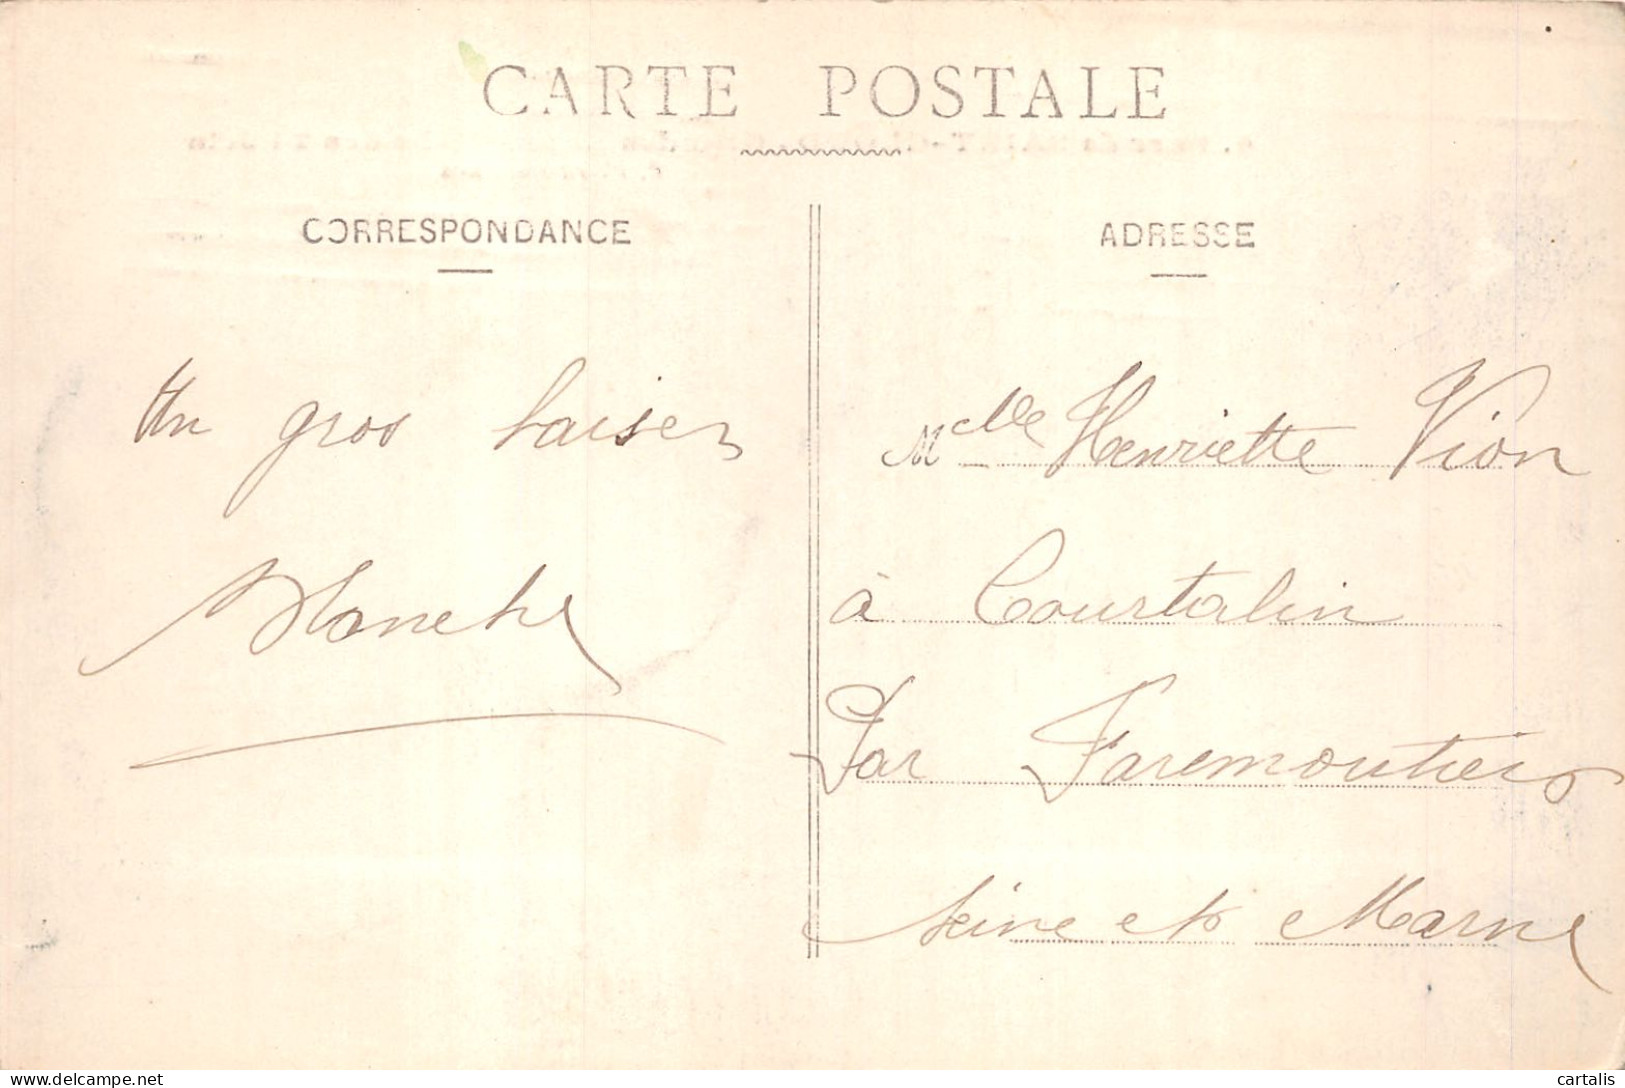 CARTE POSTALE
CORRESPONDANCE
ADRESSE
Un gros baiser
Blanche
Melle Henriette Vion
à Courtalin
Par Faremoutiers
Seine et Marne
www.delcampe.net
cartalis